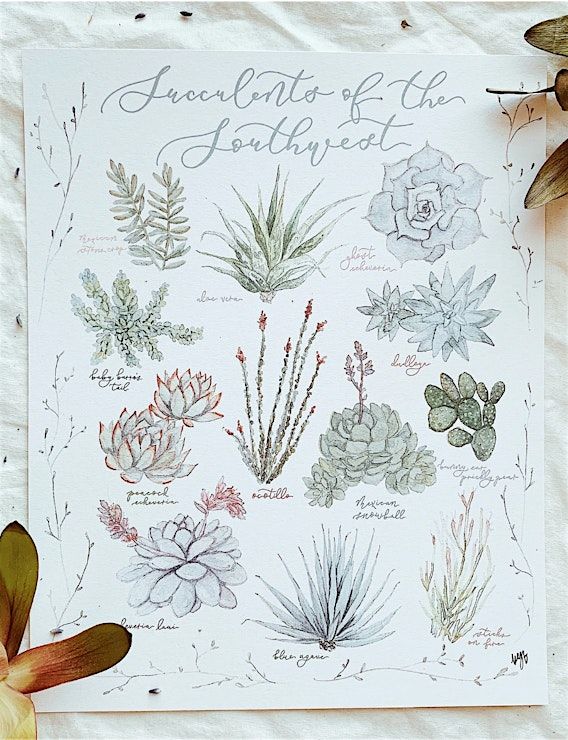 Succulents of the
Southwest
Mexican
stonecrop
aloe vera
ghost
echeveria
baby burro's
tail
dudleya
peacock
echeveria
ocotillo
Mexican
snowball
bunny ear
prickly pear
everia laui
blue agave
sticks
on fire